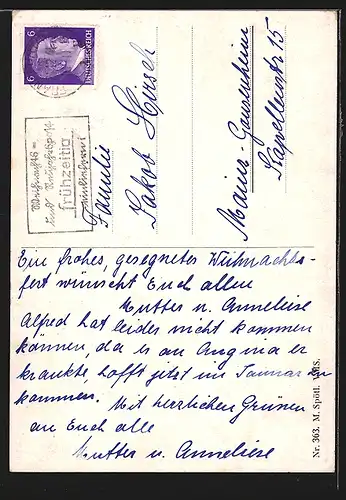 6 6
DEUTSCHES REICH
Weihnachts-
und Neujahrspost
frühzeitig
einliefern!
Familie
Jakob Hirsch
Mainz-Gonsenheim
Kapellenstr 15
Ein frohes, gesegnetes Weihnachts-
fest wünscht Euch allen
Mutter u. Anneliese
Alfred hat leider nicht kommen
können, da er an Angina er
krankte, hofft jetzt im Januar zu
kommen. Mit herzlichen Grüssen
an Euch alle
Mutter u. Anneliese
Nr. 363. M. Spötl.